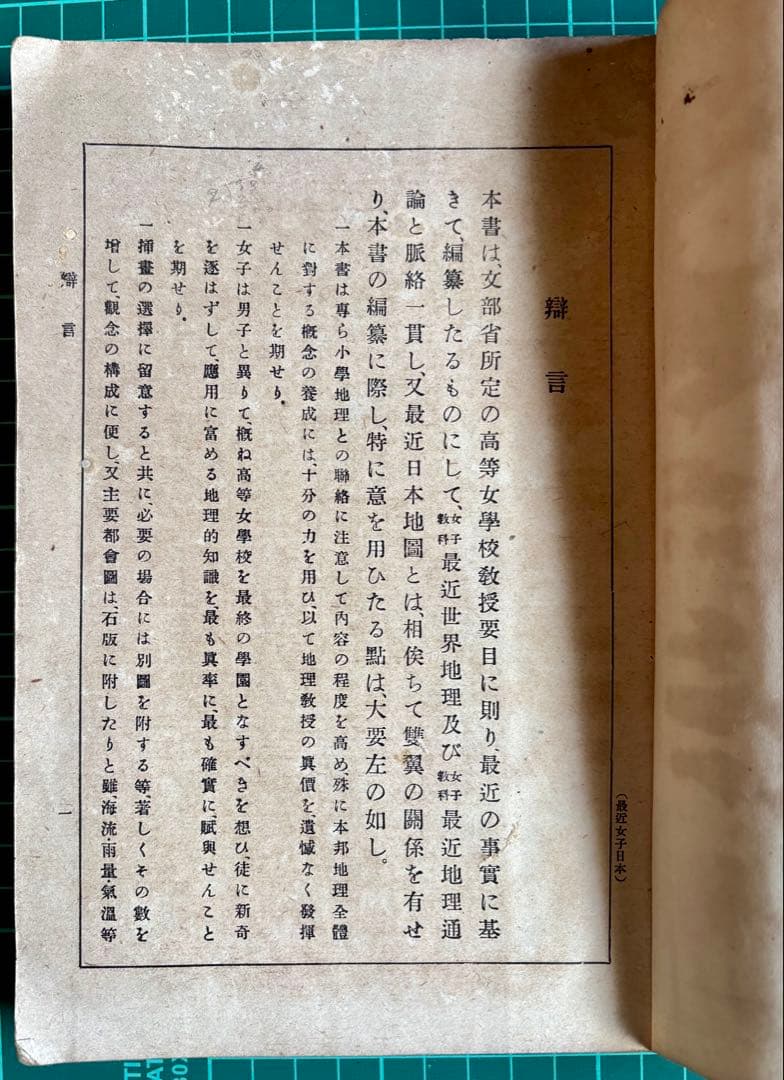 (最近女子日本)
辯言
本書は、文部省所定の高等女學校敎授要目に則り、最近の事實に基
きて、編纂したるものにして、女子敎科最近世界地理及び女子敎科最近地理通
論と脈絡一貫し、又最近日本地圖とは、相俟ちて雙翼の關係を有せ
り、本書の編纂に際し、特に意を用ひたる點は、大要左の如し。
一本書は專ら小學地理との聯絡に注意して內容の程度を高め、殊に本邦地理全體
に對する槪念の養成には、十分の力を用ひ、以て地理敎授の眞價を、遺憾なく發揮
せんことを期せり。
一女子は男子と異りて、槪ね高等女學校を最終の學園となすべきを想ひ、徒に新奇
を逐はずして、應用に富める地理的知識を、最も眞率に、最も確實に、賦與せんこと
を期せり。
一揷畫の選擇に留意すると共に、必要の場合には別圖を附する等、著しくその數を
增して、觀念の構成に便し、又主要都會圖は、石版に附したりと雖、海流・雨量・氣溫等
辯言
一